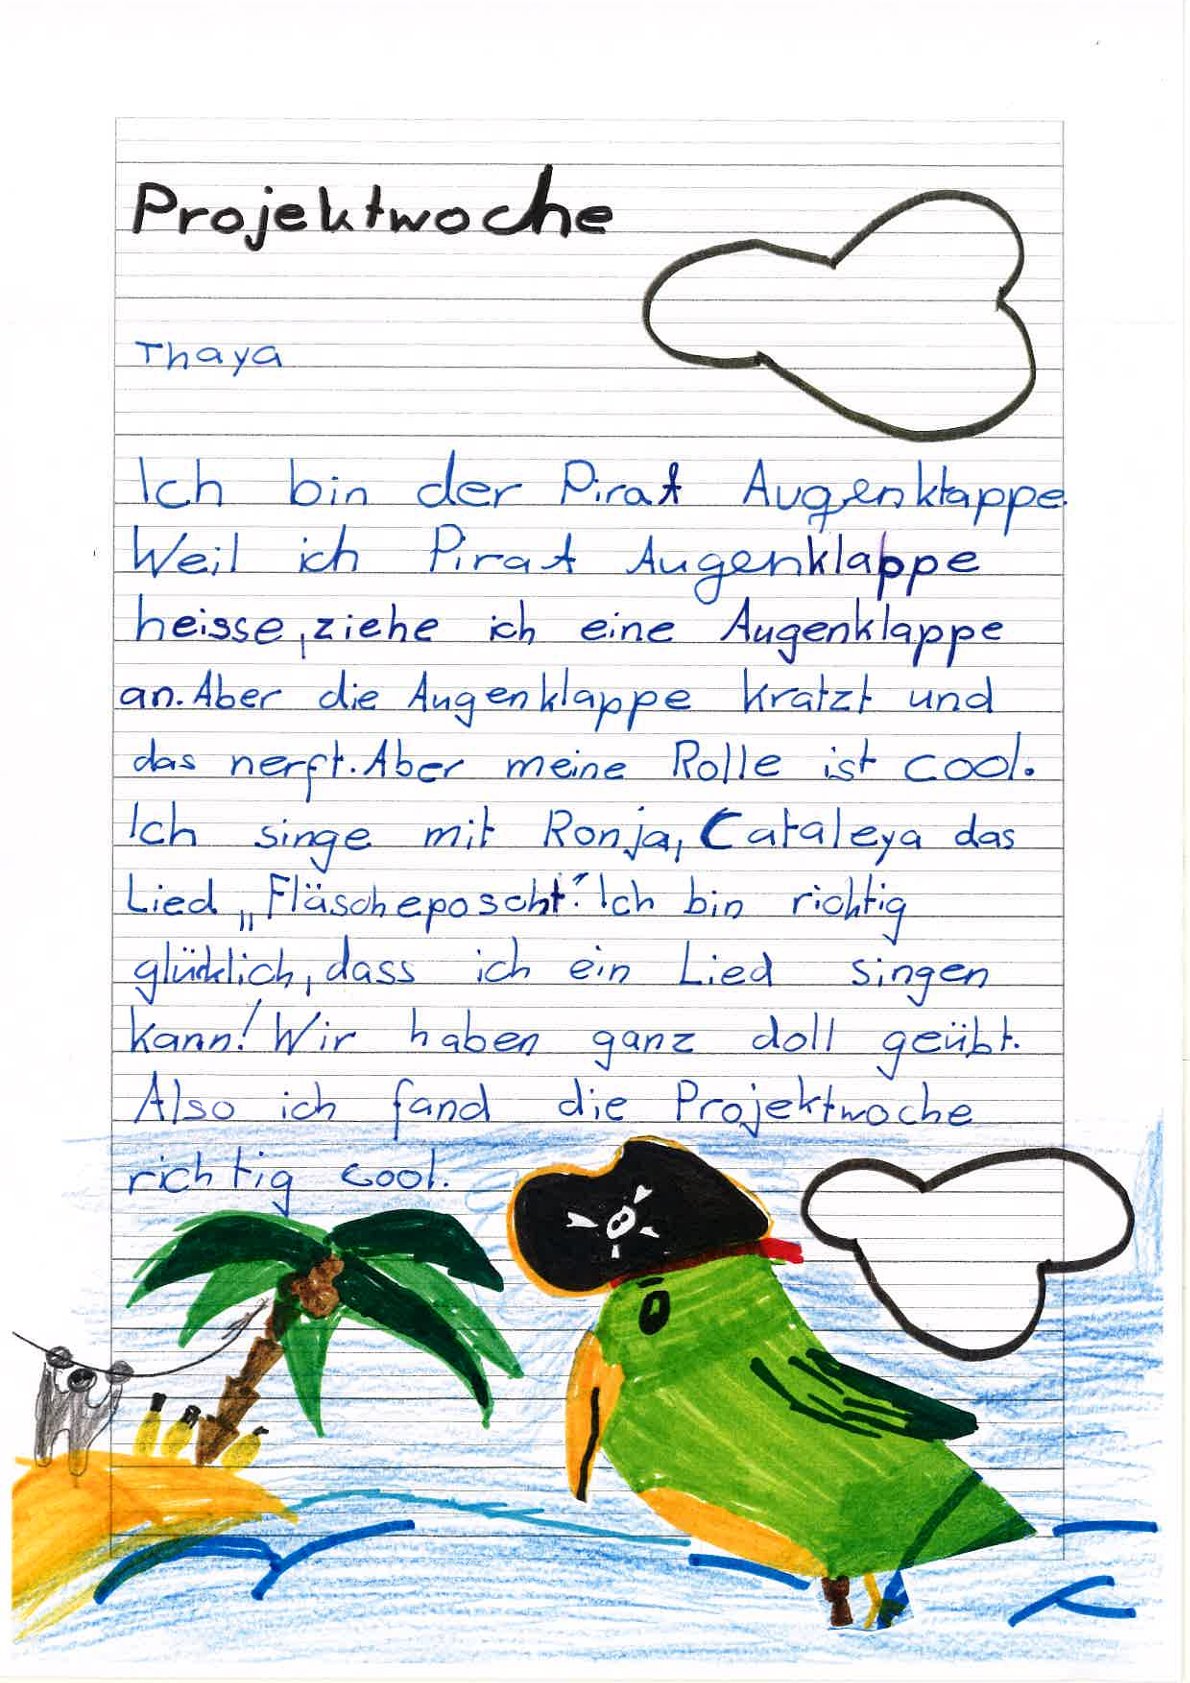 Projektwoche
Thaya
Ich bin der Pirat Augenklappe.
Weil ich Pirat Augenklappe
heisse, ziehe ich eine Augenklappe
an. Aber die Augenklappe kratzt und
das nerft. Aber meine Rolle ist cool.
Ich singe mit Ronja, Cataleya das
Lied „Fläscheposcht". Ich bin richtig
glücklich, dass ich ein Lied singen
kann! Wir haben ganz doll geübt.
Also ich fand die Projektwoche
richtig cool.